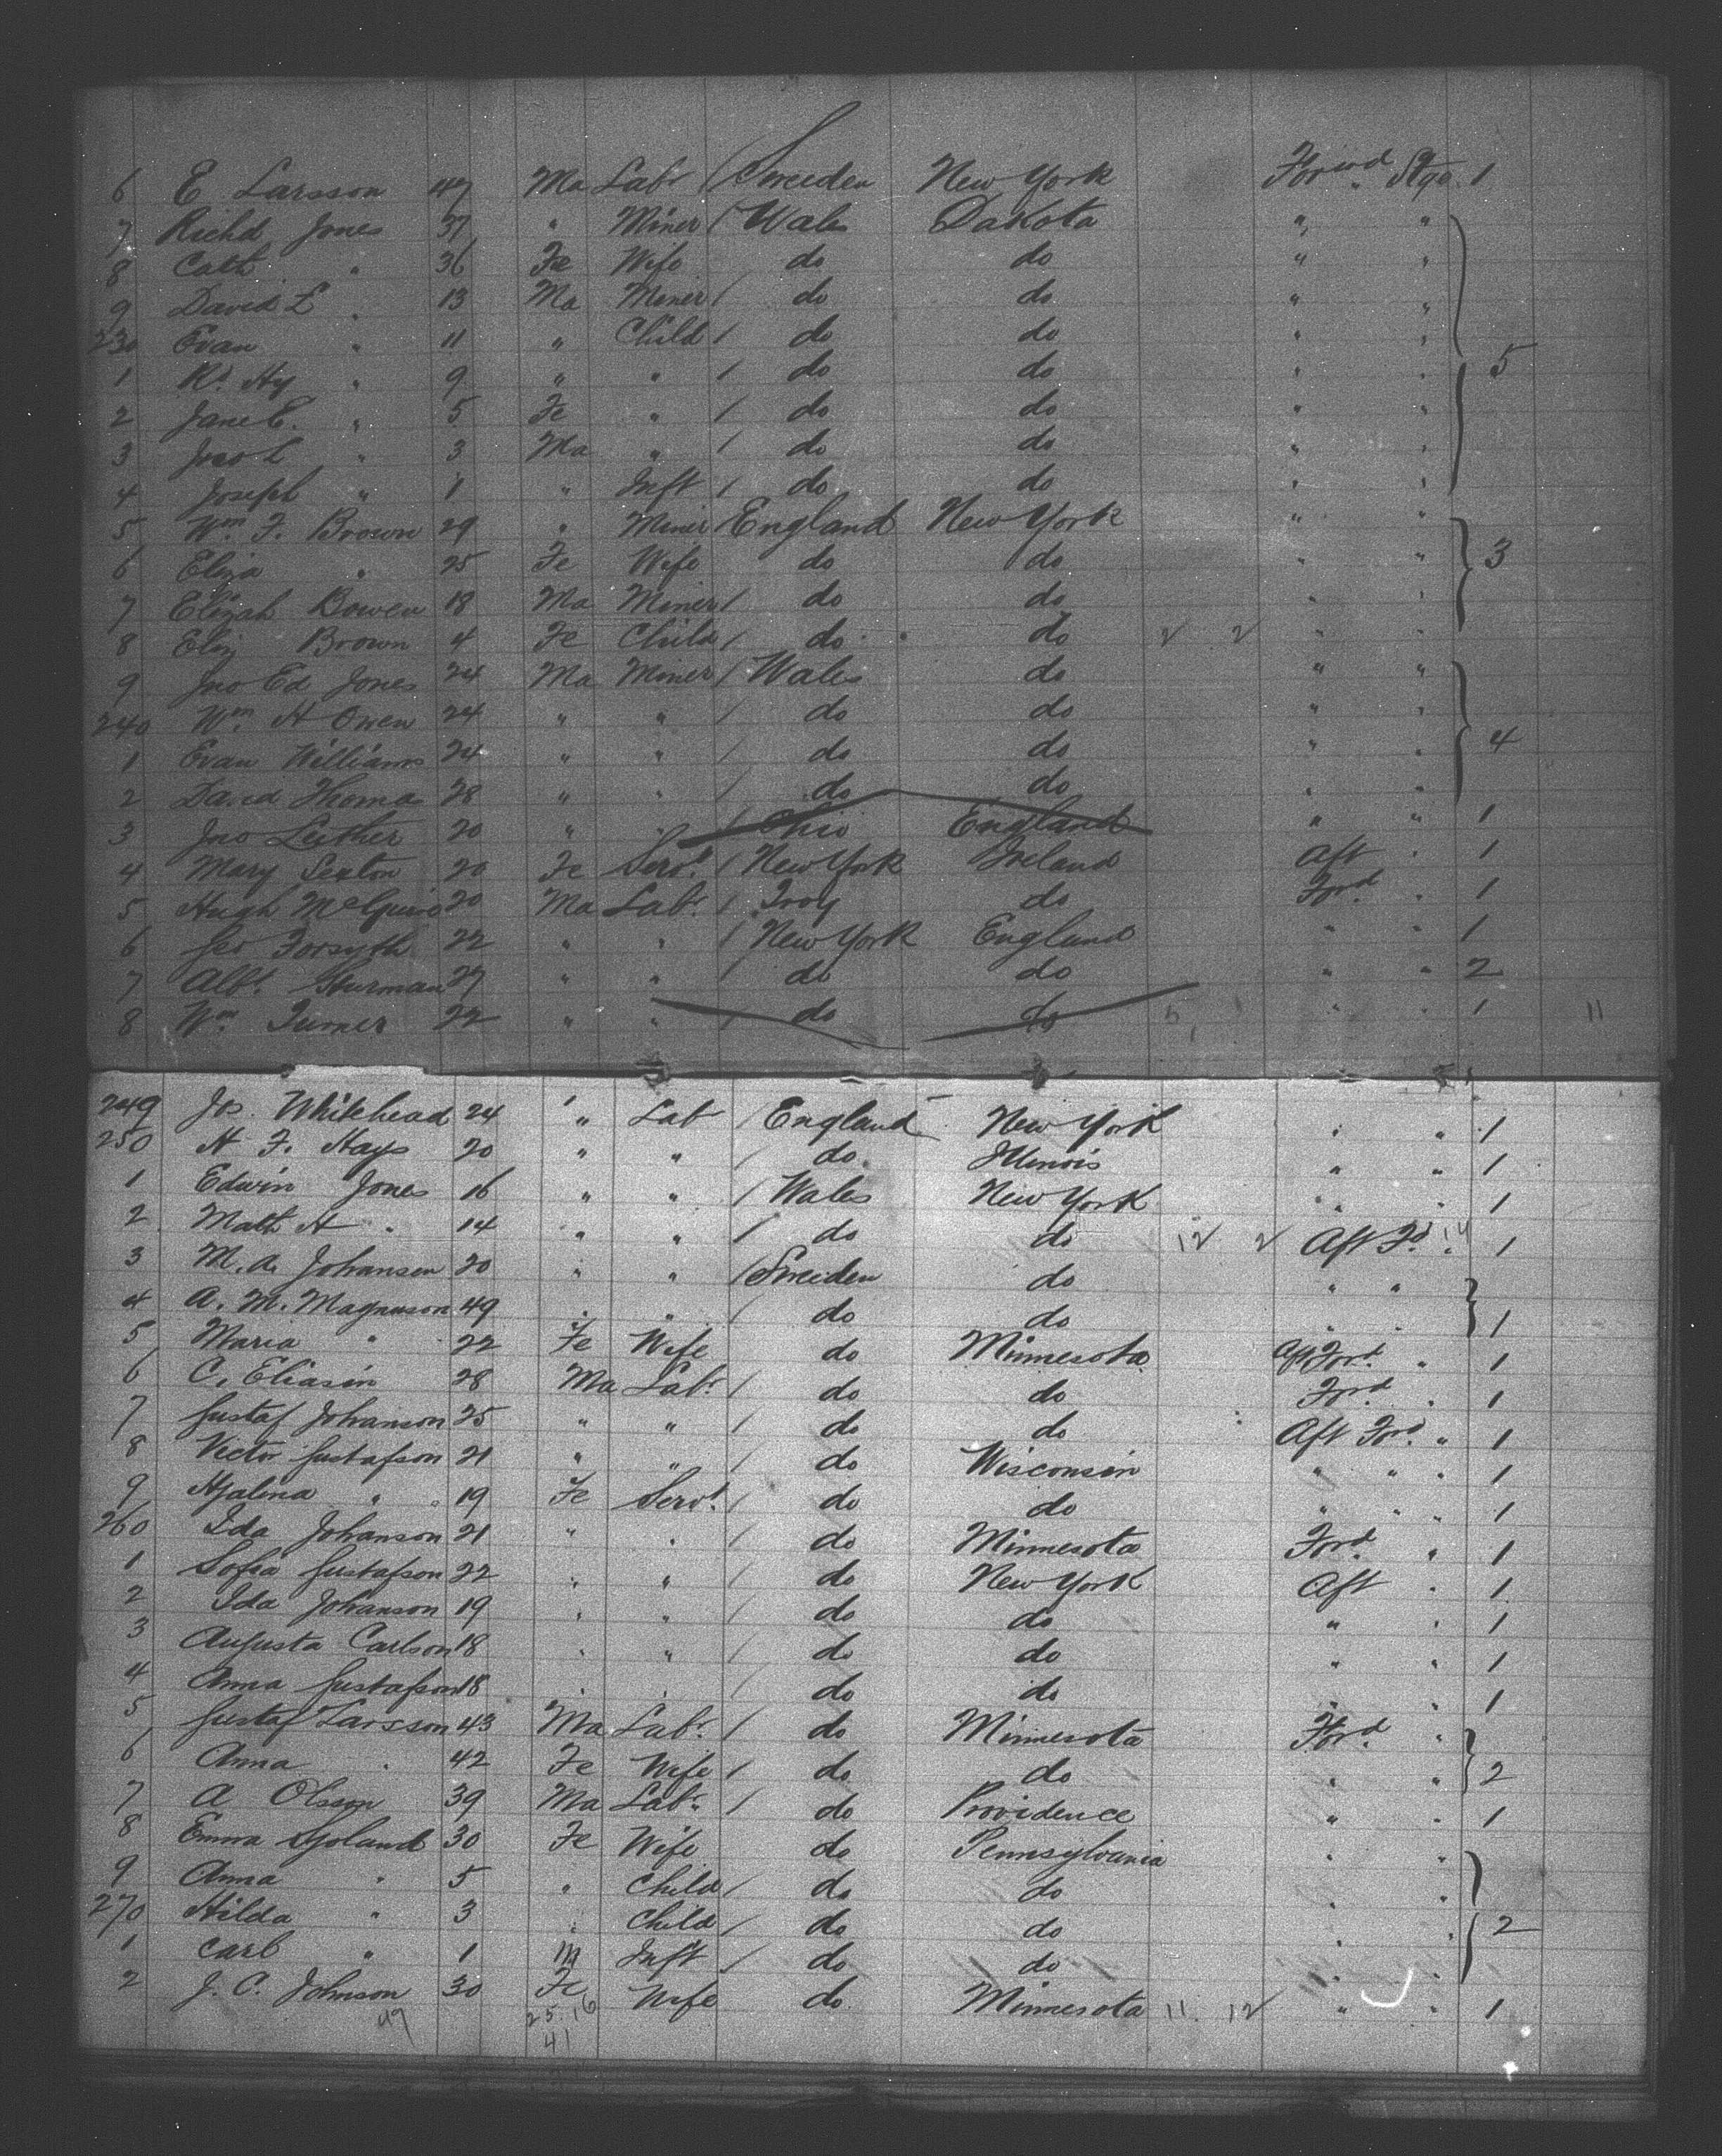 6 E Larsson 47 Ma Labr / Sweeden New York Forwd Stge 1
7 Richd Jones 37 " Miner / Wales Dakota " "
8 Cath " 36 Fe Wife do do " "
9 David E " 13 Ma Miner / do do " "
230 Evan " 11 " Child / do do " "
1 Rd Hy " 9 " " / do do " " 5
2 Jane E. " 5 Fe " / do do " "
3 " 3 Ma " / do do " "
4 Joseph " 1 " Inft / do do " "
5 Wm F. Brown 29 " Miner / England New York " "
6 Eliza " 25 Fe Wife do do " " 3
7 Elijah Bowen 18 Ma Miner / do do " "
8 Eliz Brown 4 Fe Child / do do " "
9 Jno Ed Jones 24 Ma Miner / Wales do " "
240 Wm H Owen 24 " " / do do " "
1 Evan Williams 24 " " / do do " " 4
2 David Thomas 28 " " / do do " "
3 Jno Luther 20 " " / Ohio England " " 1
4 Mary Sexton 20 Fe Servt / New York Ireland Aft " 1
5 Hugh McGuire 20 Ma Labr / Troy do Ford " 1
6 Geo Forsyth 22 " " / New York England " " 1
7 Albt. Sturman 27 " " / do do " " 2
8 Wm Turner 22 " " / do do 5 " " 1 11
249 Jos. Whitehead 24 " Lab / England New York " " 1
250 H F. Hays 20 " " / do Illinois " " 1
1 Edwin Jones 16 " " / Wales New York " " 1
2 Math H " 14 " " / do do 12 2 Aft Fd " 1
3 M. A. Johansen 20 " " / Sweiden do " "
4 A. M. Magnuson 49 " " / do do " " 1
5 Maria " 22 Fe Wife do Minnesota Aft Ford " 1
6 C. Eliasin 28 Ma Labr / do do Ford " 1
7 Gustaf Johanson 25 " " / do do Aft Ford " 1
8 Victor Gustafson 21 " " / do Wisconsin " " " 1
9 Hjalina " 19 Fe Servt / do do " " " 1
260 Ida Johanson 21 " " / do Minnesota Ford " 1
1 Sofia Gustafson 22 " " / do New York Aft " 1
2 Ida Johanson 19 " " / do do " " 1
3 Augusta Carlson 18 " " / do do " " 1
4 Anna Gustafson 18 " " / do do " " 1
5 Gustaf Larsson 43 Ma Labr / do Minnesota Ford "
6 Anna " 42 Fe Wife / do do " " 2
7 A Olson 39 Ma Labr / do Providence " " 1
8 Emma 30 Fe Wife do Pennsylvania " "
9 Anna " 5 " Child / do do " "
270 Hilda " 3 " Child / do do " " 2
1 Carl " 1 M Inft / do do " "
2 J. C. Johnson 30 Fe Wife do Minnesota 11 12 " " 1
49 25.16
41